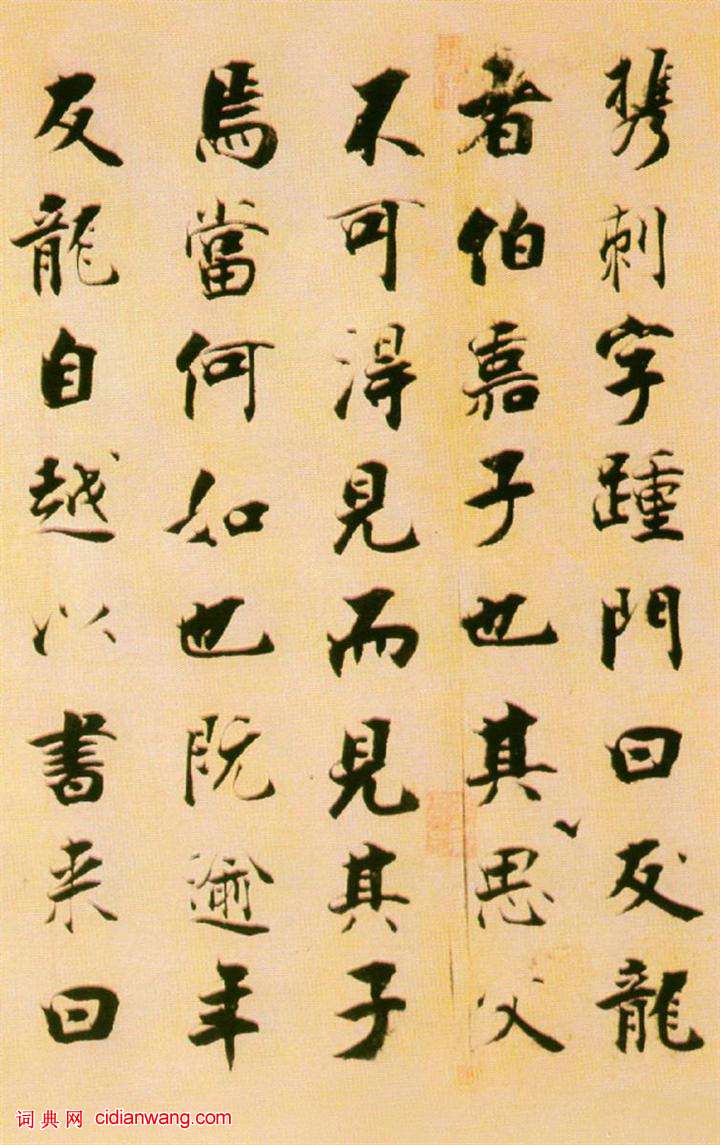 携刺字踵門曰友龍
者伯嘉子也其思父
不可得見而見其子
焉當何如也既逾年
友龍自越以書来曰
词典网 cidianwang.com